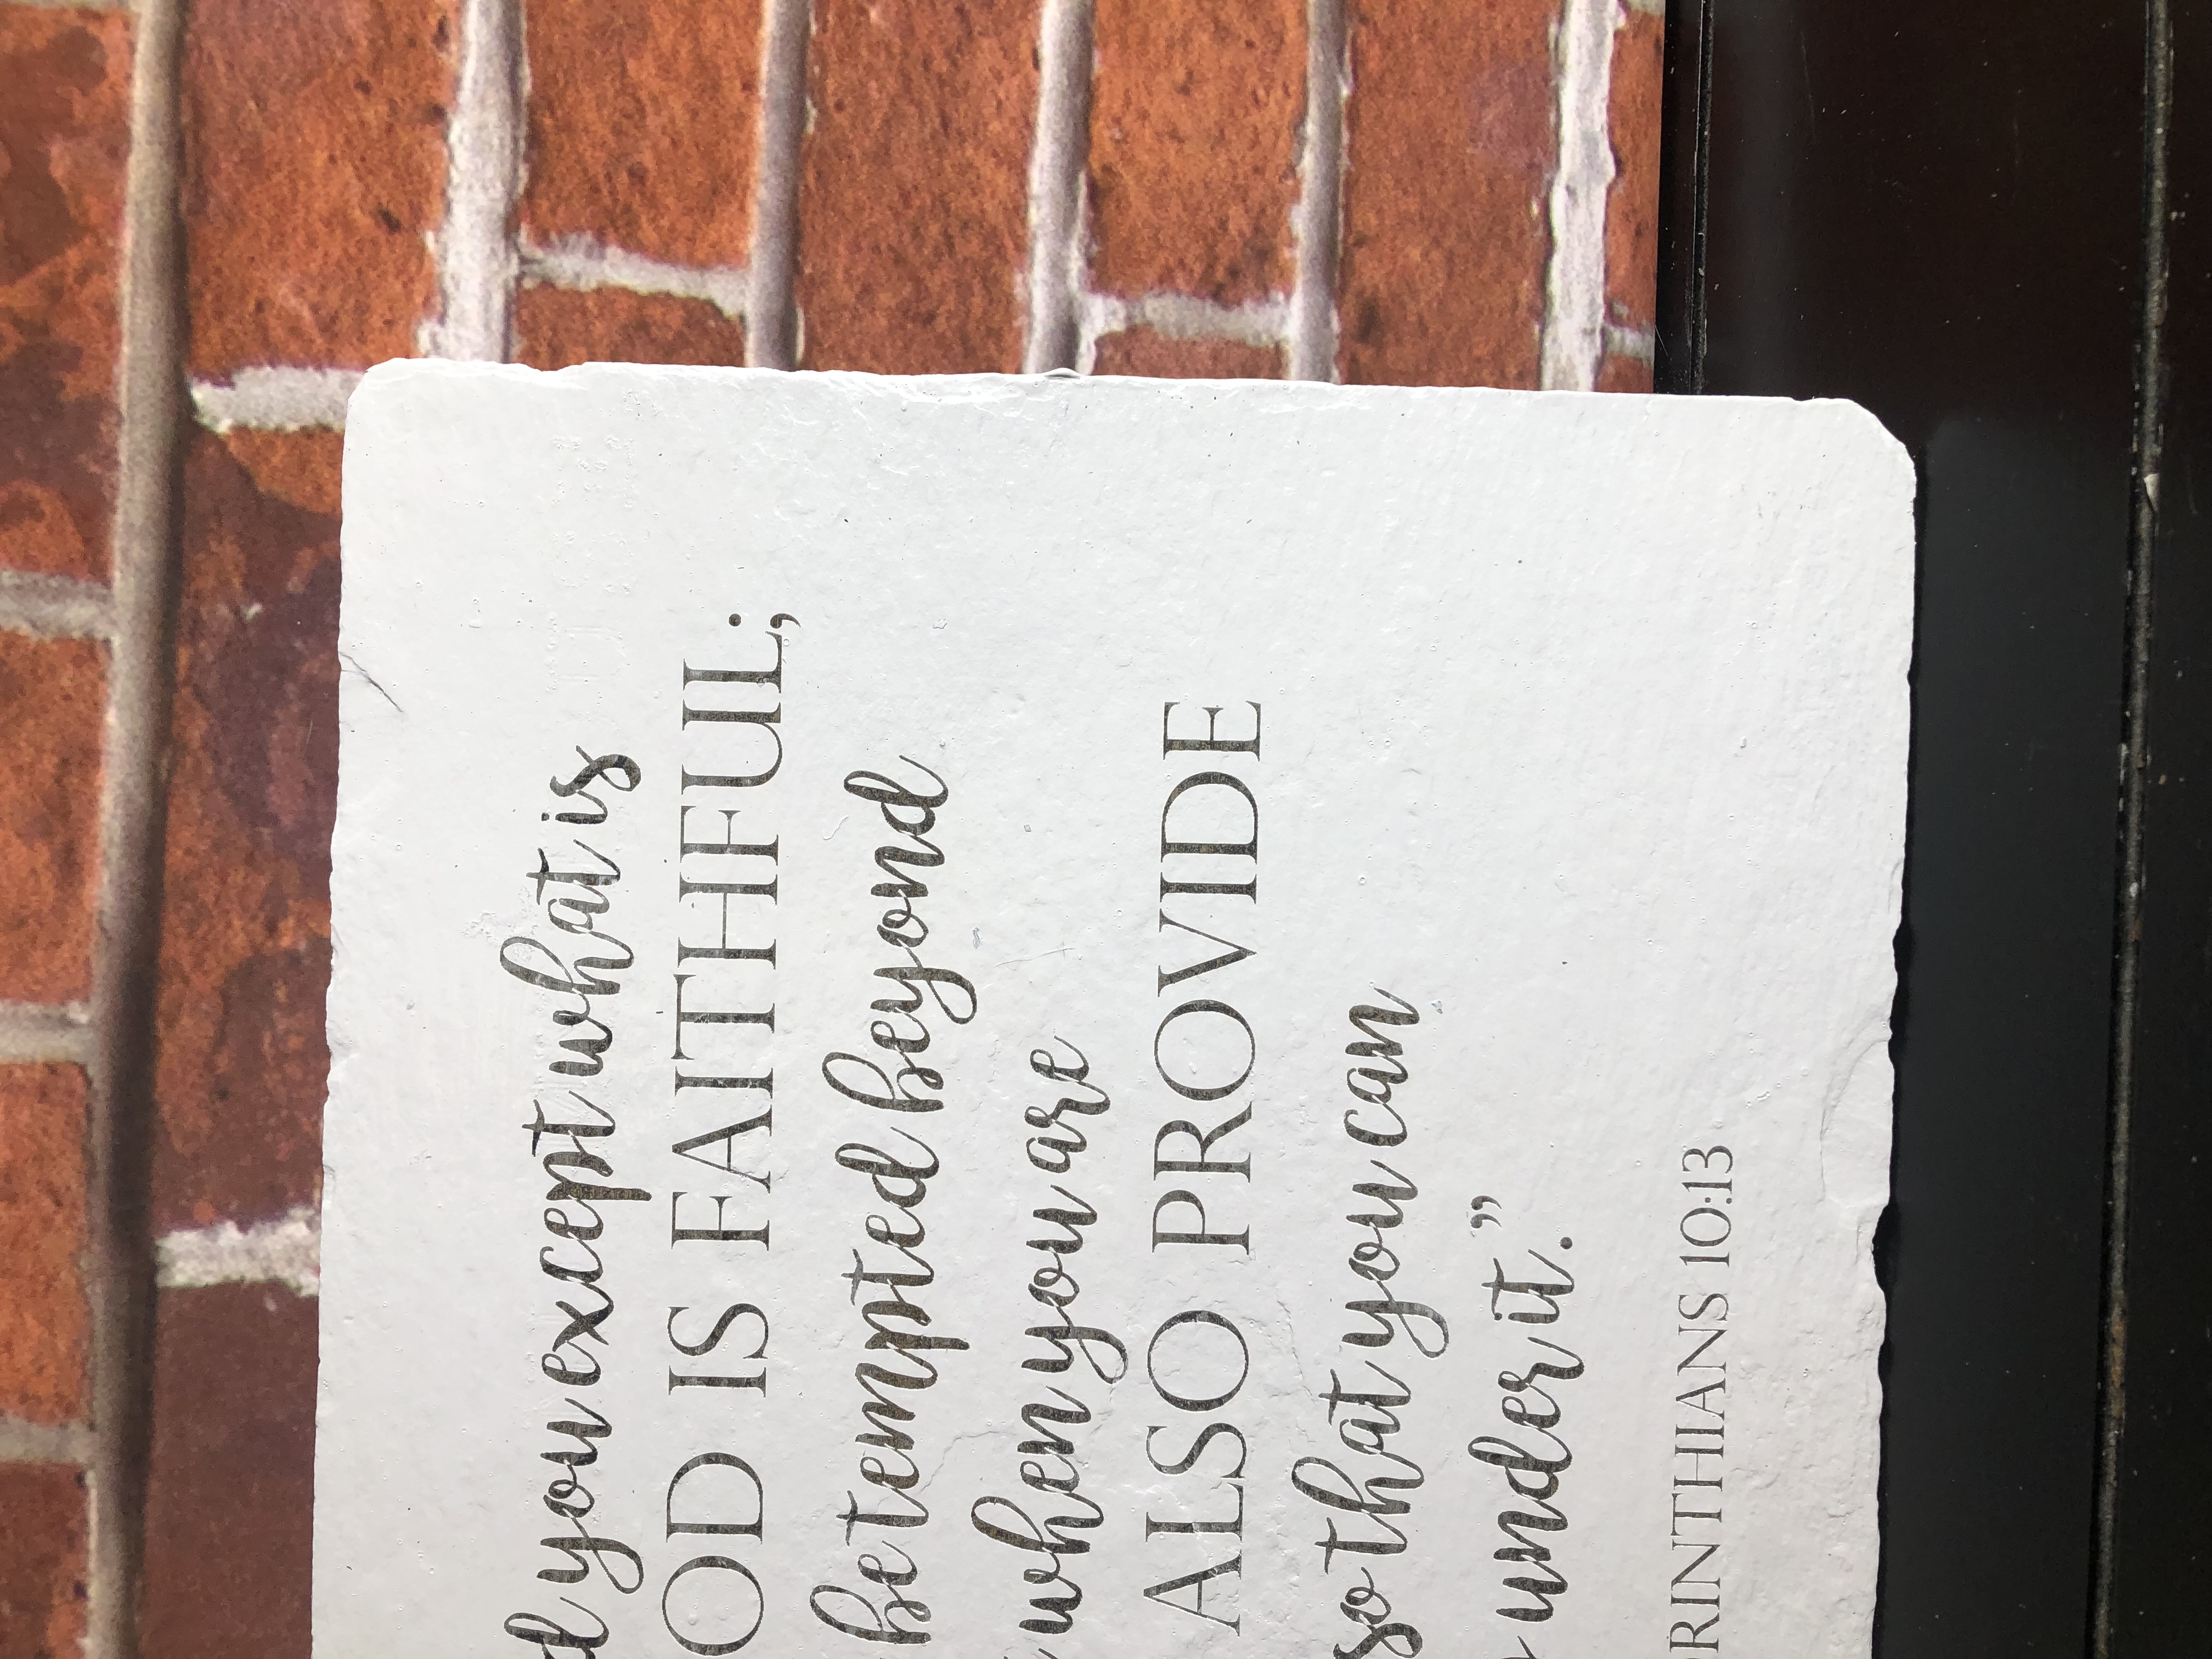 you except what is
OD IS FAITHFUL;
be tempted beyond
when you are
ALSO PROVIDE
so that you can
under it.”
RINTHIANS 10:13